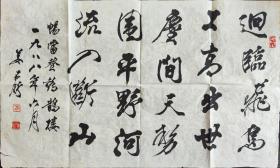 迥臨飛鳥
上高出世
塵間天勢
围平野河
流入斷山
暢當登鸛鵲樓
一九八八年六月